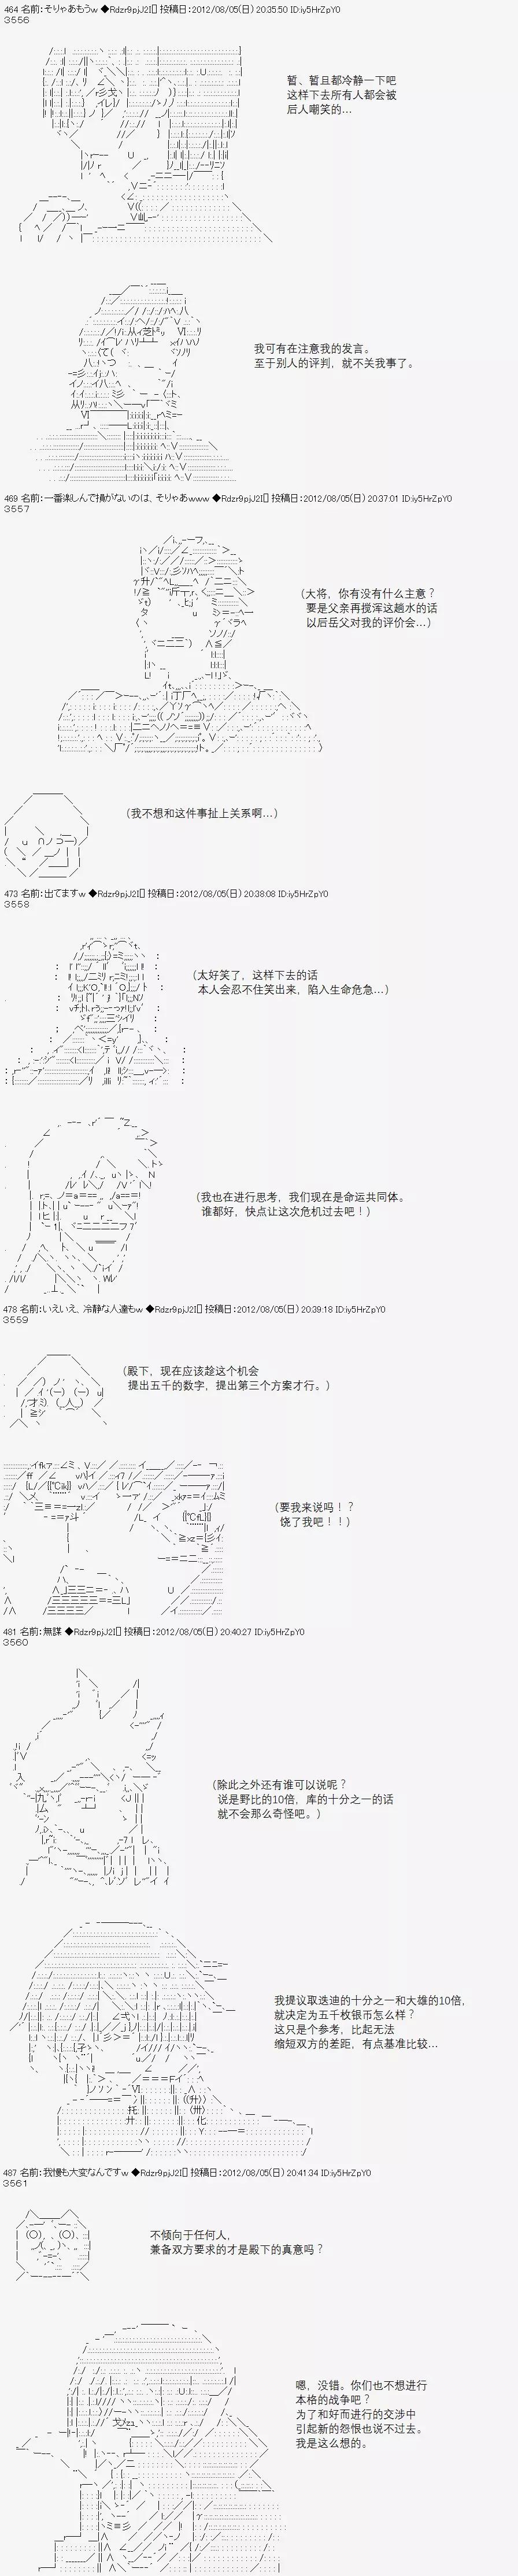 464 名前：そりゃあもうｗ ◆Rdzr9pjJ2I[] 投稿日：2012/08/05(日) 20:35:50 ID:iy5HrZpY0
3556
暂、暂且都冷静一下吧
这样下去所有人都会被
后人嘲笑的...
我可有在注意我的发言。
至于别人的评判，就不关我事了。
469 名前：一番楽しんで損がないのは、そりゃあwww ◆Rdzr9pjJ2I[] 投稿日：2012/08/05(日) 20:37:01 ID:iy5HrZpY0
3557
（大将，你有没有什么主意？
要是父亲再搅浑这趟水的话
以后岳父对我的评价会...）
（我不想和这件事扯上关系啊...）
473 名前：出てますｗ ◆Rdzr9pjJ2I[] 投稿日：2012/08/05(日) 20:38:08 ID:iy5HrZpY0
3558
（太好笑了，这样下去的话
本人会忍不住笑出来，陷入生命危急...）
（我也在进行思考，我们现在是命运共同体。
谁都好，快点让这次危机过去吧！）
478 名前：いえいえ、冷静な人達もｗ ◆Rdzr9pjJ2I[] 投稿日：2012/08/05(日) 20:39:18 ID:iy5HrZpY0
3559
（殿下，现在应该趁这个机会
提出五千的数字，提出第三个方案才行。）
（要我来说吗！？
饶了我吧！！）
481 名前：無謀 ◆Rdzr9pjJ2I[] 投稿日：2012/08/05(日) 20:40:27 ID:iy5HrZpY0
3560
（除此之外还有谁可以说呢？
说是野比的10倍，库的十分之一的话
就不会那么奇怪吧。）
我提议取迭迪的十分之一和大雄的10倍，
就决定为五千枚银币怎么样？
这只是个参考，比起无法
缩短双方的差距，有点基准比较...
487 名前：我慢も大変なんですｗ ◆Rdzr9pjJ2I[] 投稿日：2012/08/05(日) 20:41:34 ID:iy5HrZpY0
3561
不倾向于任何人，
兼备双方要求的才是殿下的真意吗？
嗯，没错。你们也不想进行
本格的战争吧？
为了和好而进行的交涉中
引起新的怨恨也说不过去。
我是这么想的。